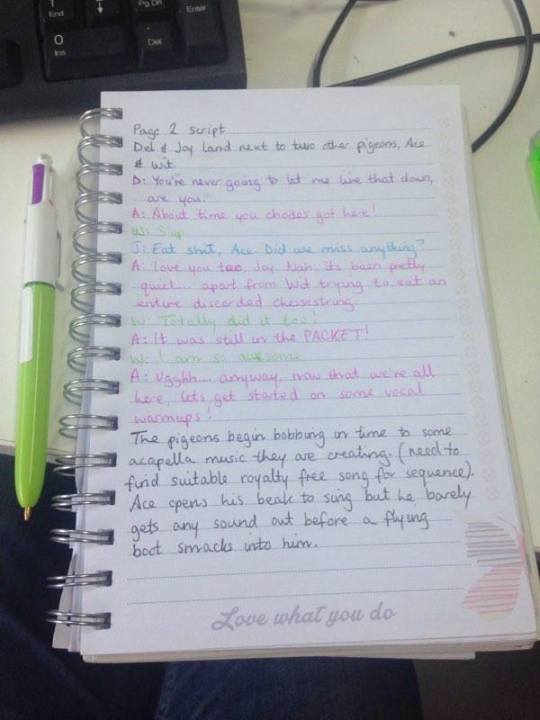 End
PgDn
Enter
0
Ins
Del
Page 2 script
Del & Jay land next to two other pigeons, Ace
& Wit.
D: You're never going to let me live that down,
are you.
A: About time you chodes got here!
W: S'up
J: Eat shit, Ace. Did we miss anything?
A: Love you too, Jay. Nah, its been pretty
quiet... apart from Wit trying to eat an
entire discarded cheesestring.
W: Totally did it too!
A: It was still in the PACKET!
W: I am so awesome
A: Ugghh... anyway, now that we're all
here, lets get started on some vocal
warmups!
The pigeons begin bobbing in time to some
acapella music they are creating. (need to
find suitable royalty free song for sequence).
Ace opens his beak to sing but he barely
gets any sound out before a flying
boot smacks into him.
Love what you do